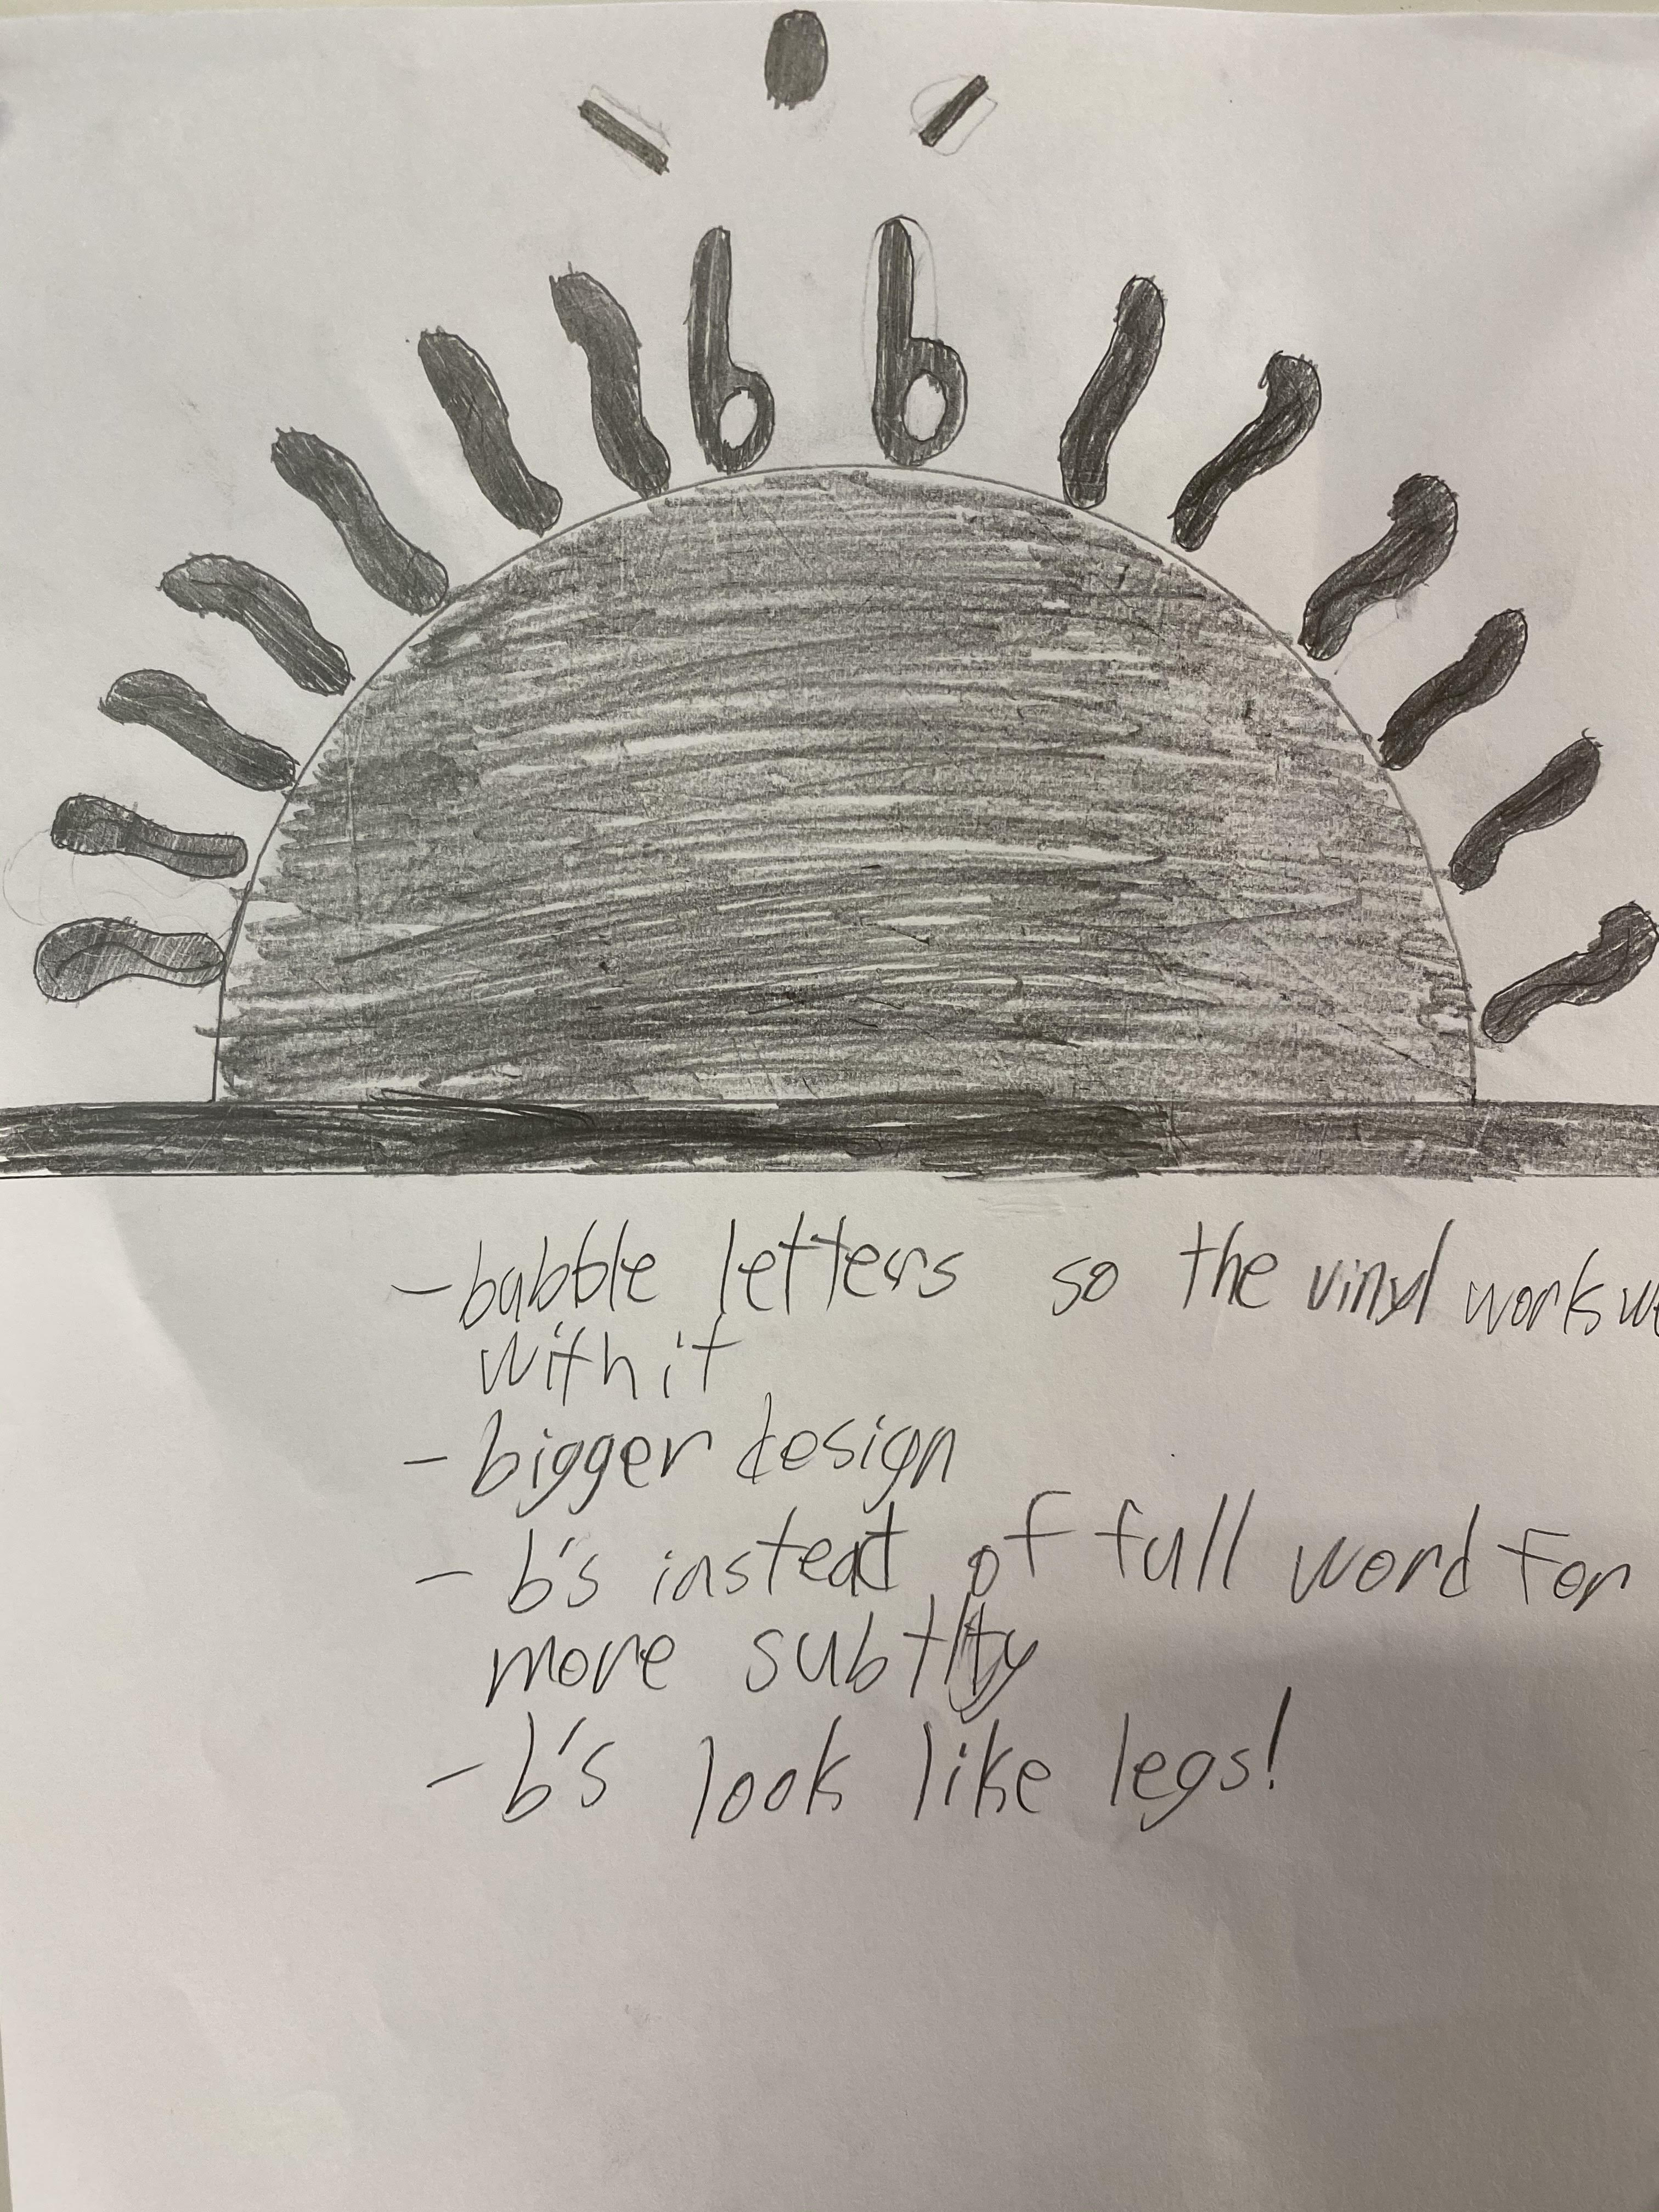 b b
- bubble letters so the vinyl works
with it
- bigger design
- b's instead of full word for
more subtlty
- b's look like legs!